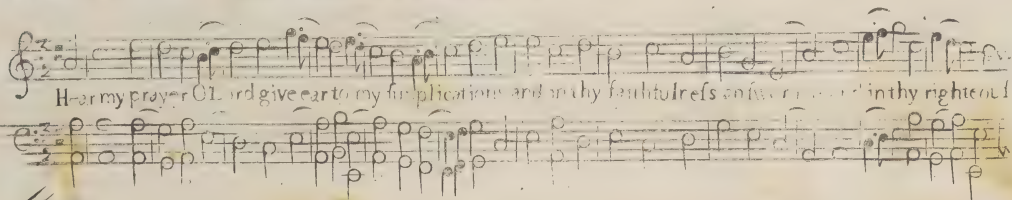 Hear my prayer O Lord give ear to my supplications and in thy faithfulness answer in thy righteous